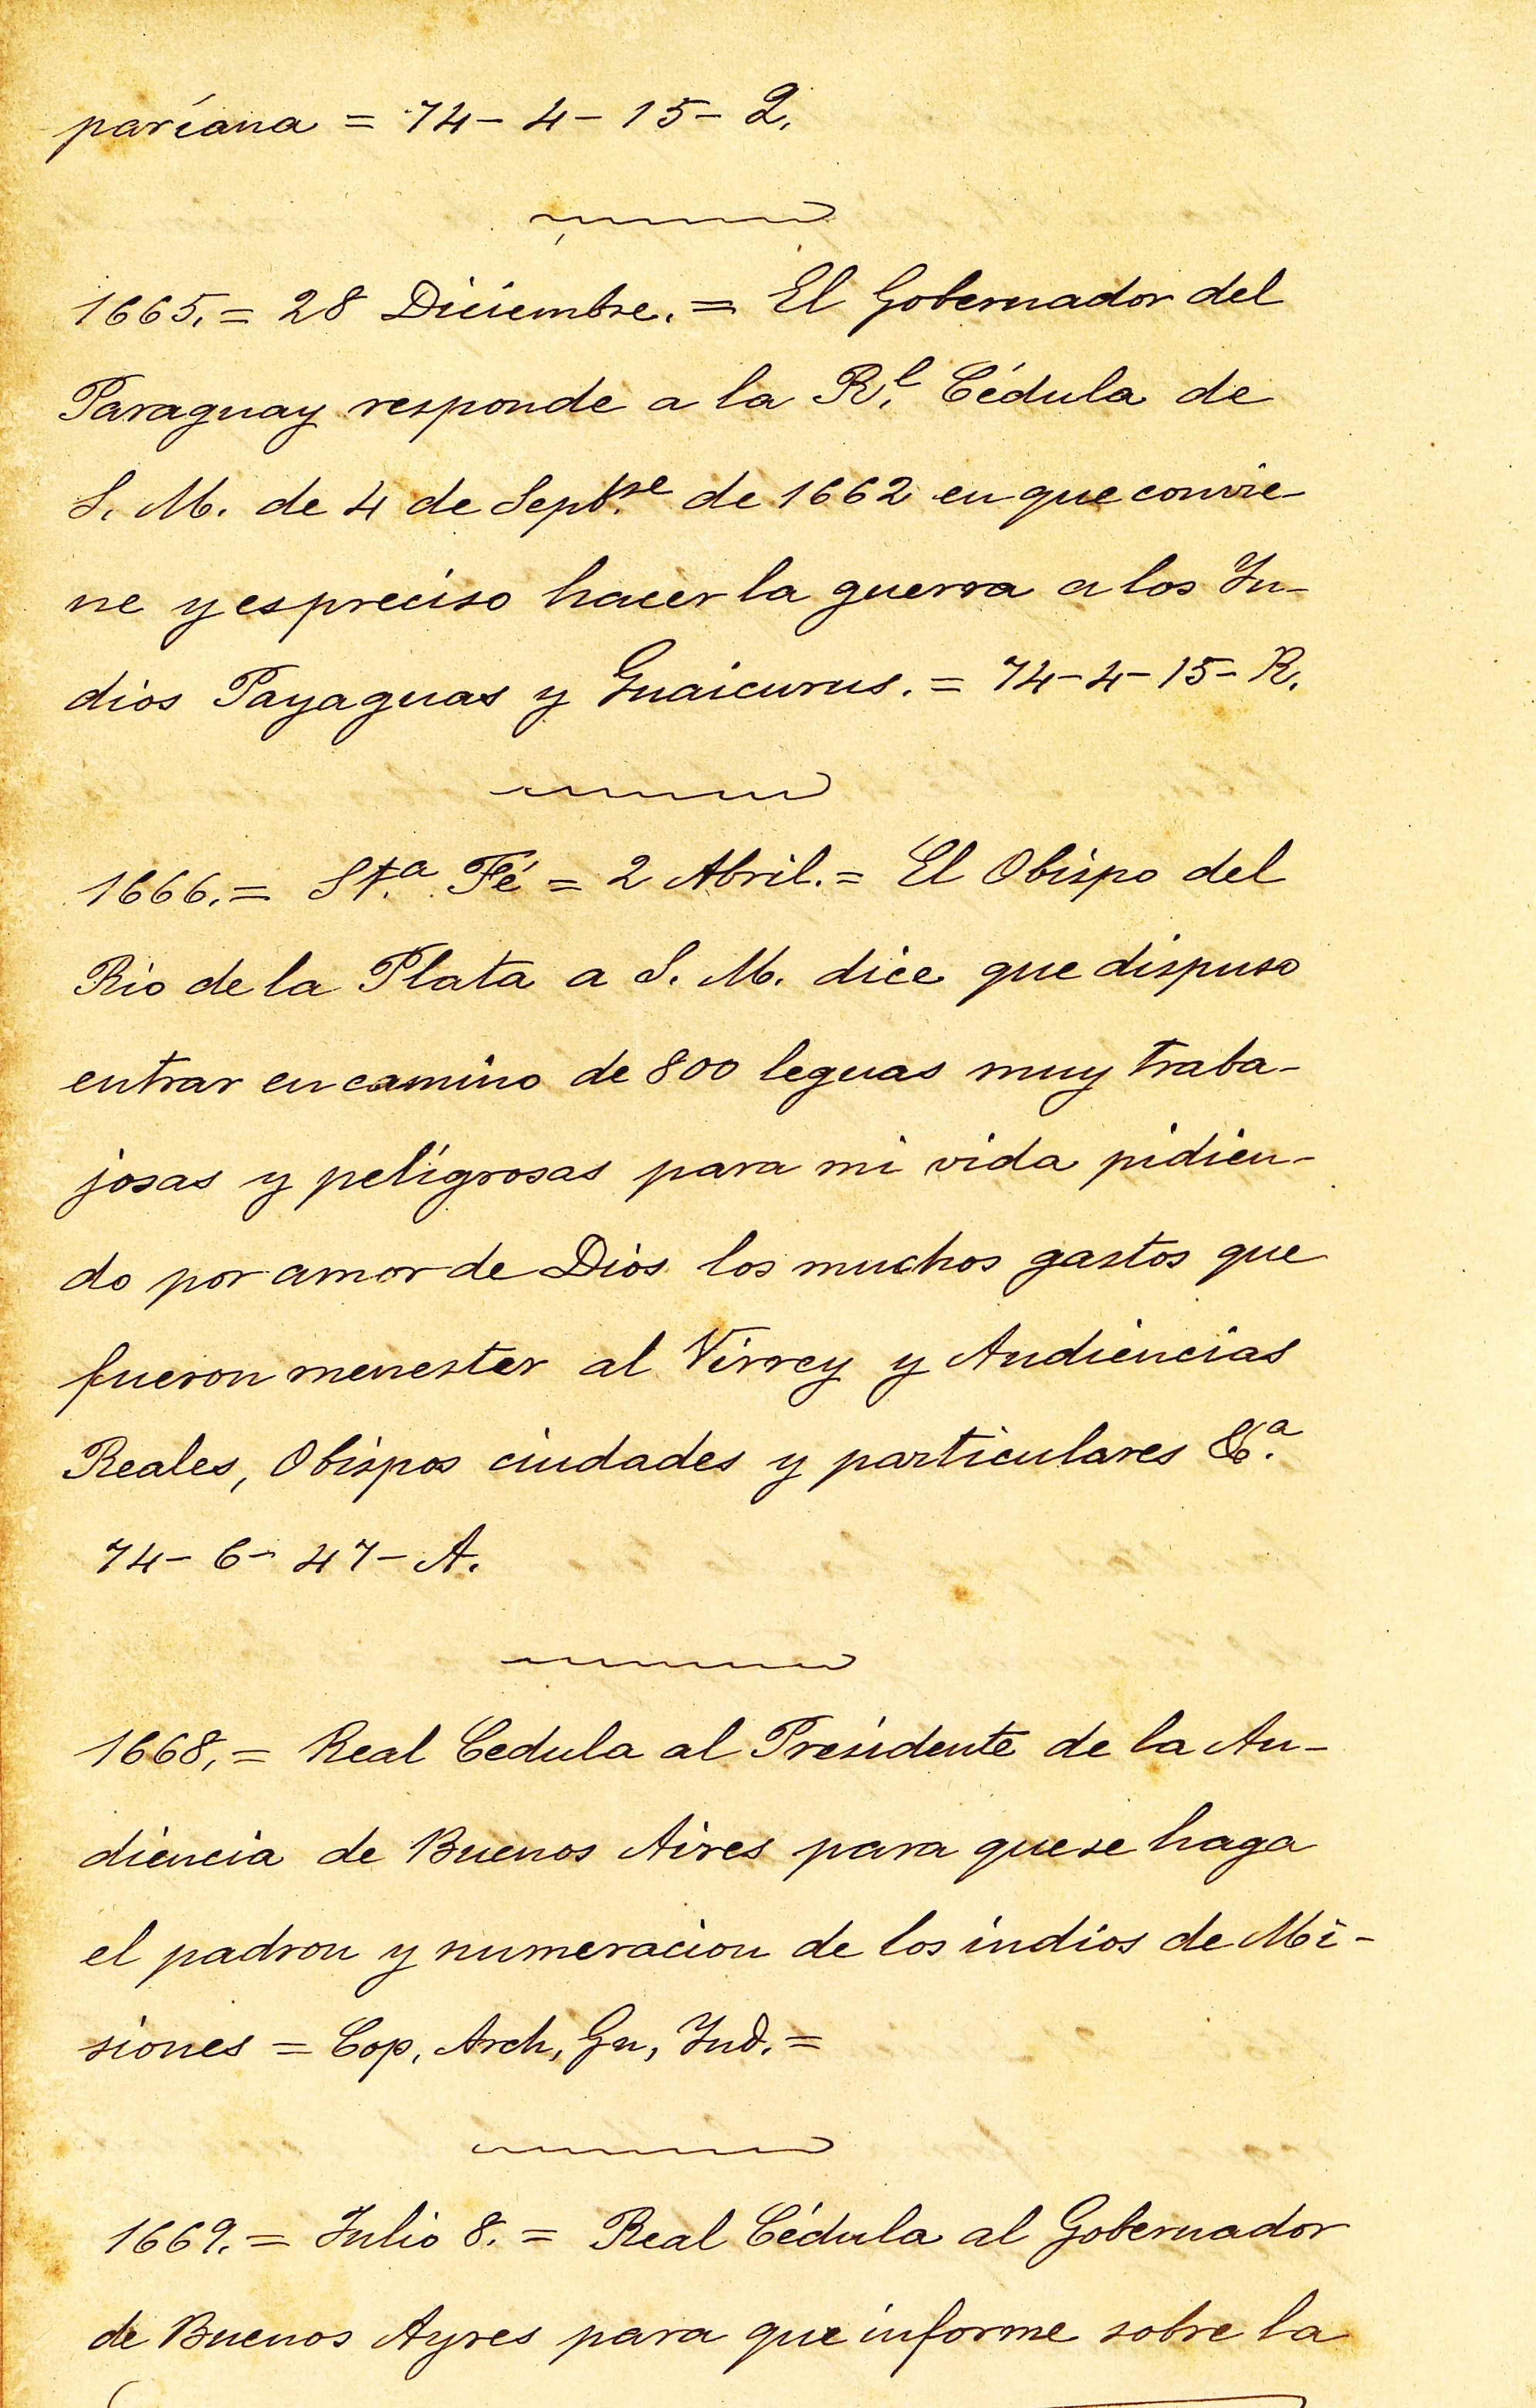 paríana = 74-4-15-Q.
1665. = 28 Diciembre. = El Gobernador del
Paraguay responde a la R.l Cédula de
S. M. de 4 de Septbre de 1662 en que convie-
ne y es preciso hacer la guerra a los In-
dios Payaguas y Guaicurus. = 74-4-15-R.
1666. = St.a Fé = 2 Abril. = El Obispo del
Rio de la Plata a S. M. dice que dispuso
entrar en camino de 800 leguas muy traba-
josas y peligrosas para mi vida pidien-
do por amor de Dios los muchos gastos que
fueron menester al Virrey y Audiencias
Reales, Obispos ciudades y particulares &.a
74-6-47-A.
1668. = Real Cedula al Presidente de la Au-
diencia de Buenos Aires para que se haga
el padron y numeracion de los indios de Mi-
siones = Cop, Arch, Gn, Ind. =
1669. = Julio 8. = Real Cédula al Gobernador
de Buenos Ayres para que informe sobre la